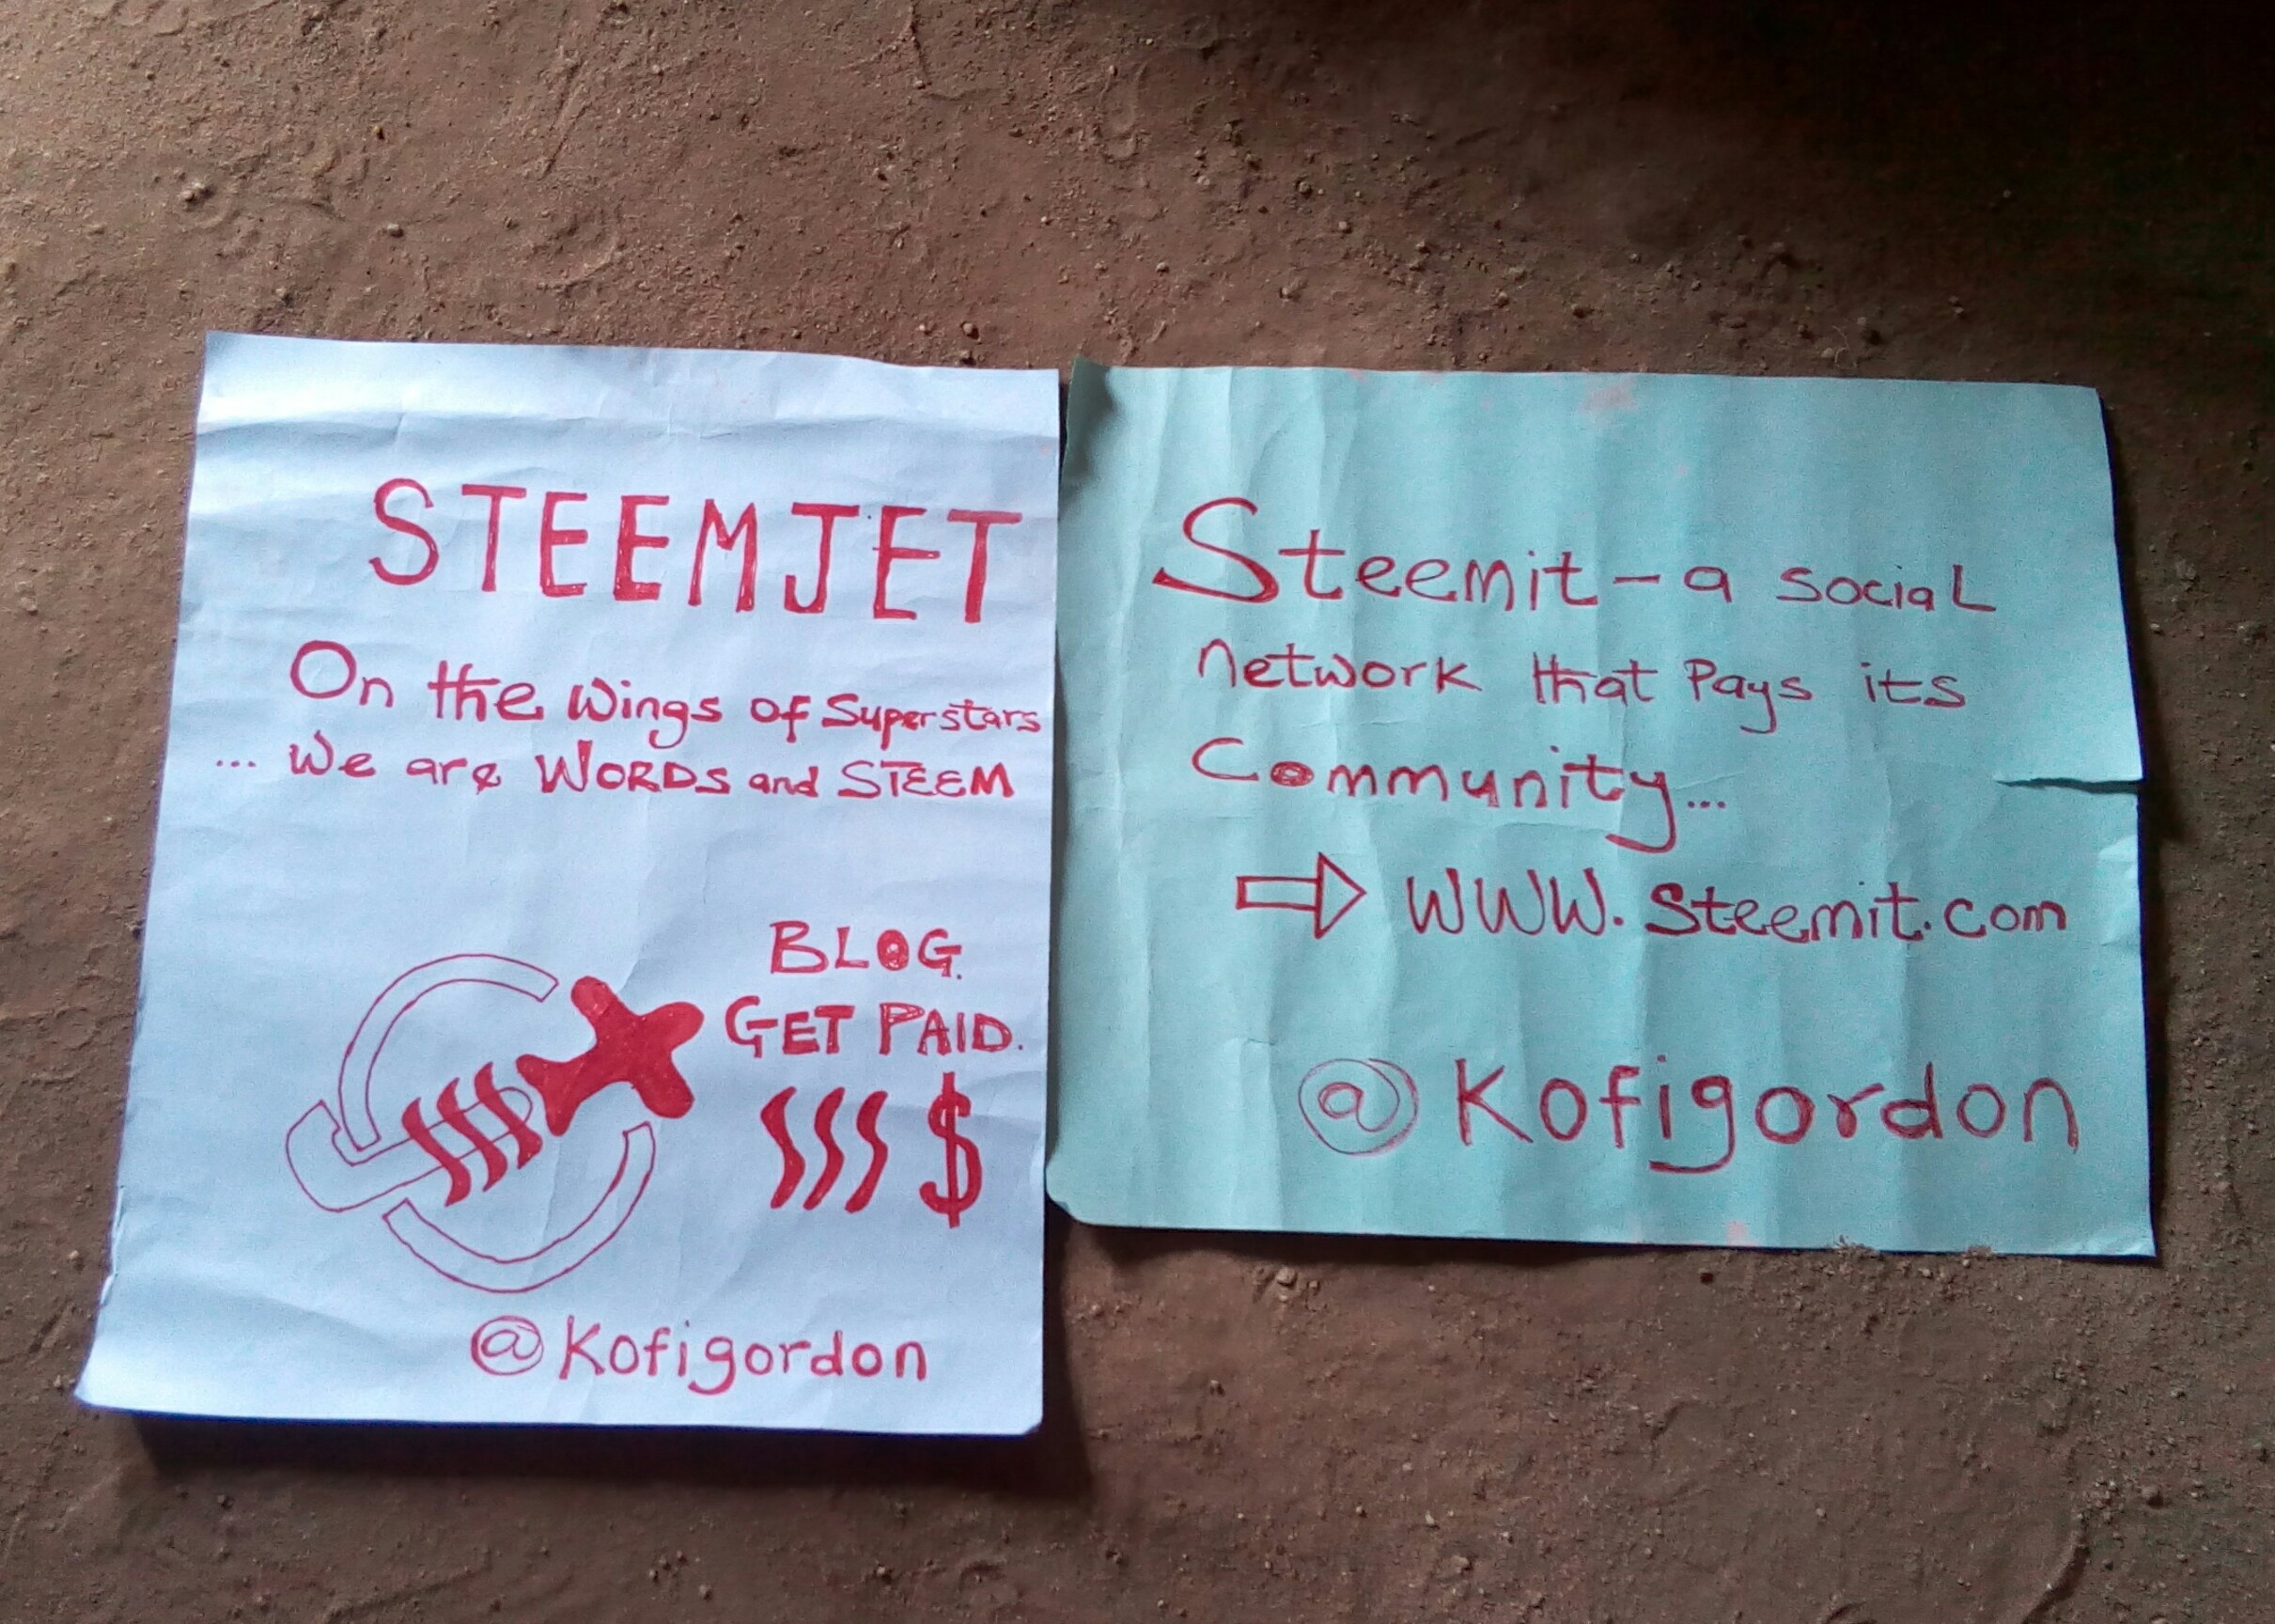 STEEMJET
On the Wings of Superstars
... We are WORDS and STEEM
BLOG.
GET PAID.
$
@Kofigordon
Steemit - a social
network that Pays its
Community...
⇒ WWW.Steemit.com
@Kofigordon